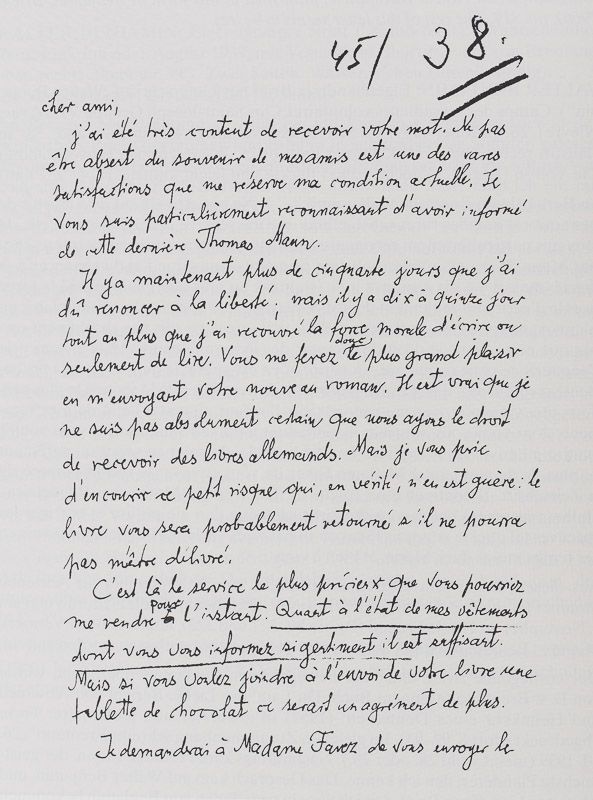 45/ 38.
cher ami,
j'ai été très content de recevoir votre mot. Ne pas
être absent du souvenir de mes amis est une des rares
satisfactions que me réserve ma condition actuelle. Je
vous suis particulièrement reconnaissant d'avoir informé
de cette dernière Thomas Mann.
Il y a maintenant plus de cinquante jours que j'ai
dû renoncer à la liberté; mais il y a dix à quinze jour
tout au plus que j'ai recouvré la force morale d'écrire ou
seulement de lire. Vous me ferez donc le plus grand plaisir
en m'envoyant votre nouveau roman. Il est vrai que je
ne suis pas absolument certain que nous ayons le droit
de recevoir des livres allemands. Mais je vous prie
d'encourir ce petit risque qui, en vérité, n'en est guère: le
livre vous sera probablement retourné s'il ne pourra
pas m'être délivré.
C'est là le service le plus précieux que vous pourriez
me rendre pour l'instant. Quant à l'état de mes vêtements
dont vous vous informez si gentiment il est suffisant.
Mais si vous voulez joindre à l'envoi de votre livre une
tablette de chocolat ce serait un agrément de plus.
Je demanderai à Madame Favez de vous envoyer le